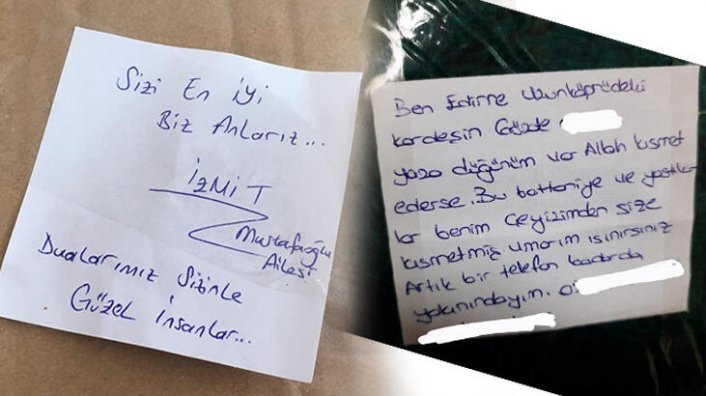 Sizi En iyi
Biz Anlarız...
İZMİT
Mustafaoğlu
Ailesi
Dualarımız Sizinle
Güzel İnsanlar...
Ben Edirne Uzunköprüdeki
kardeşin Gözde
yaza düğünüm var Allah kısmet
ederse. Bu battaniye ve yastık
lar benim çeyizimden size
kısmetmiş umarım ısınırsınız
Artık bir telefon kadarda
yakınındayım.